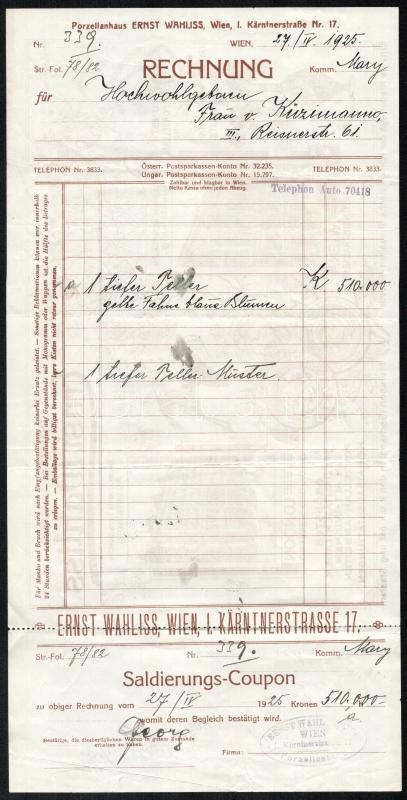 Porzellanhaus ERNST WAHLISS, Wien, I. Kärntnerstraße Nr. 17.
Nr. 339. WIEN, 27/IV 1925.
Str.-Fol. 78/82 RECHNUNG Komm. Mary
für Hochwohlgeboren
Frau v.
III., Reisnerstr. 61.
TELEPHON Nr. 3833. Österr. Postsparkassen-Konto Nr. 32.235. TELEPHON Nr. 3833.
Ungar. Postsparkassen-Konto Nr. 15.797.
Zahlbar und klagbar in Wien.
Netto Kassa ohne jeden Abzug.
Telephon Auto 70418
a 1 tiefer Teller K 510.000
gelbe Fahne blaue Blumen
1 tiefer Teller Muster.
Für Manko und Bruch wird nach Empfangsbestätigung keinerlei Ersatz geleistet. — Sonstige Reklamationen können nur innerhalb
24 Stunden berücksichtigt werden. — Bei Bestellungen auf Gegenstände mit Monogramm oder Wappen ist die Hälfte des Betrages
zu erlegen. — Emballage wird billigst berechnet, leere Kisten nicht retour genommen.
ERNST WAHLISS, WIEN, I. KÄRNTNERSTRASSE 17.
Str.-Fol. 78/82 Nr. 339. Komm. Mary
Saldierungs-Coupon
zu obiger Rechnung vom 27/IV 1925 Kronen 510.000
womit deren Begleich bestätigt wird. a.
Georg
Bestätige, die diesbezüglichen Waren in gutem Zustande
erhalten zu haben.
Firma:
ERNST WAHL
WIEN
I. Kärntnerstra
Porzellan